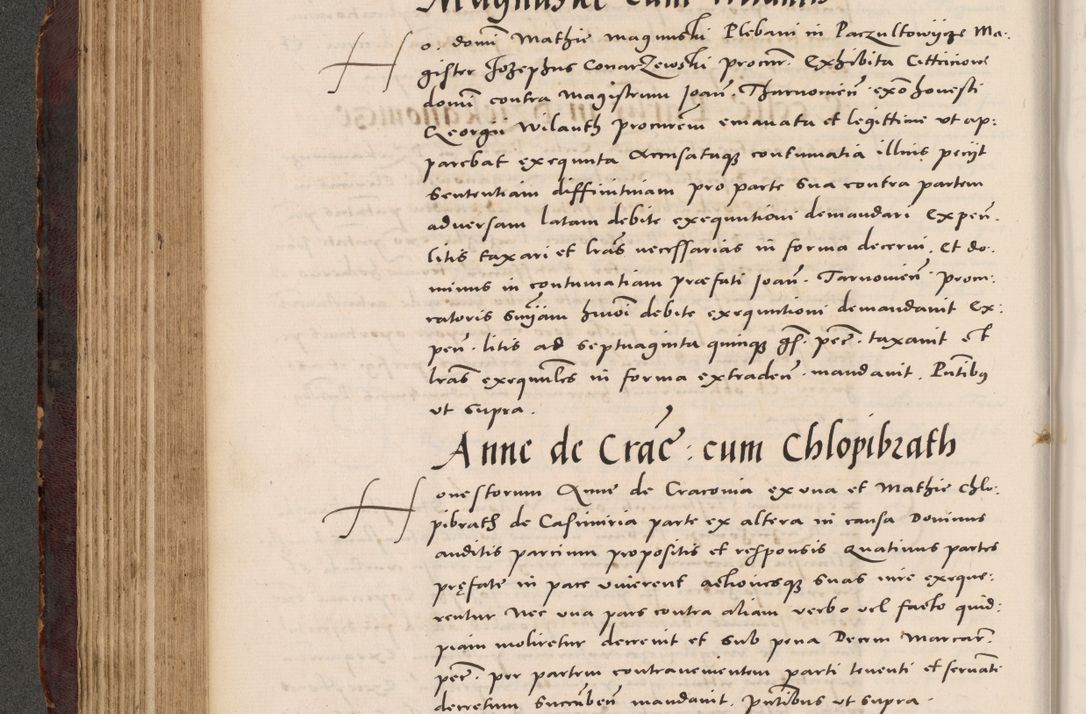 Magnuskie cum
Ho. domi Mathie magnuski Plebani in Paczultowycze Ma.
gister Jozephus Conarzewski procur. Exhibita Cittatione
domi contra Magistrum Joan. Tharnowien. exo honesti
Georgii Wilauth procurem emanata et legittime ut ap:
parebat exequuta Accusatusque contumatia illius petiit
sententiam diffinitivam pro parte sua contra partem
adversam latam debite exequutioni demandari Expen.
litis taxari et lras necessarias in forma decerni. Et do.
minus in contumatiam præfati Joan. Tarnowien. procu:
ratoris smiam hmoi debite exequutioni demandavit Ex:
pen. litis ad septuaginta quinque gs. pec. taxavit et
lras exequnles in forma extraden. mandavit. Pntibus
ut supra.
Anne de Crac: cum Chlopibrath
Honestorum Anne de Craconia ex una et Mathie Chlo.
pibrath de Casimiria parte ex altera in causa Dominus
auditis parcium propositis et responsis Quatinus partes
pręfate in pace viverent actionesque suas iure exeque:
rentur Nec una pars contra aliam verbo vel facto quid:
piam moliretur decrevit et sub pena Decem Marcar.
pec. per partem contravenientem parti tenenti et servanti
decretum succuben. mandavit. Pntibus ut supra.